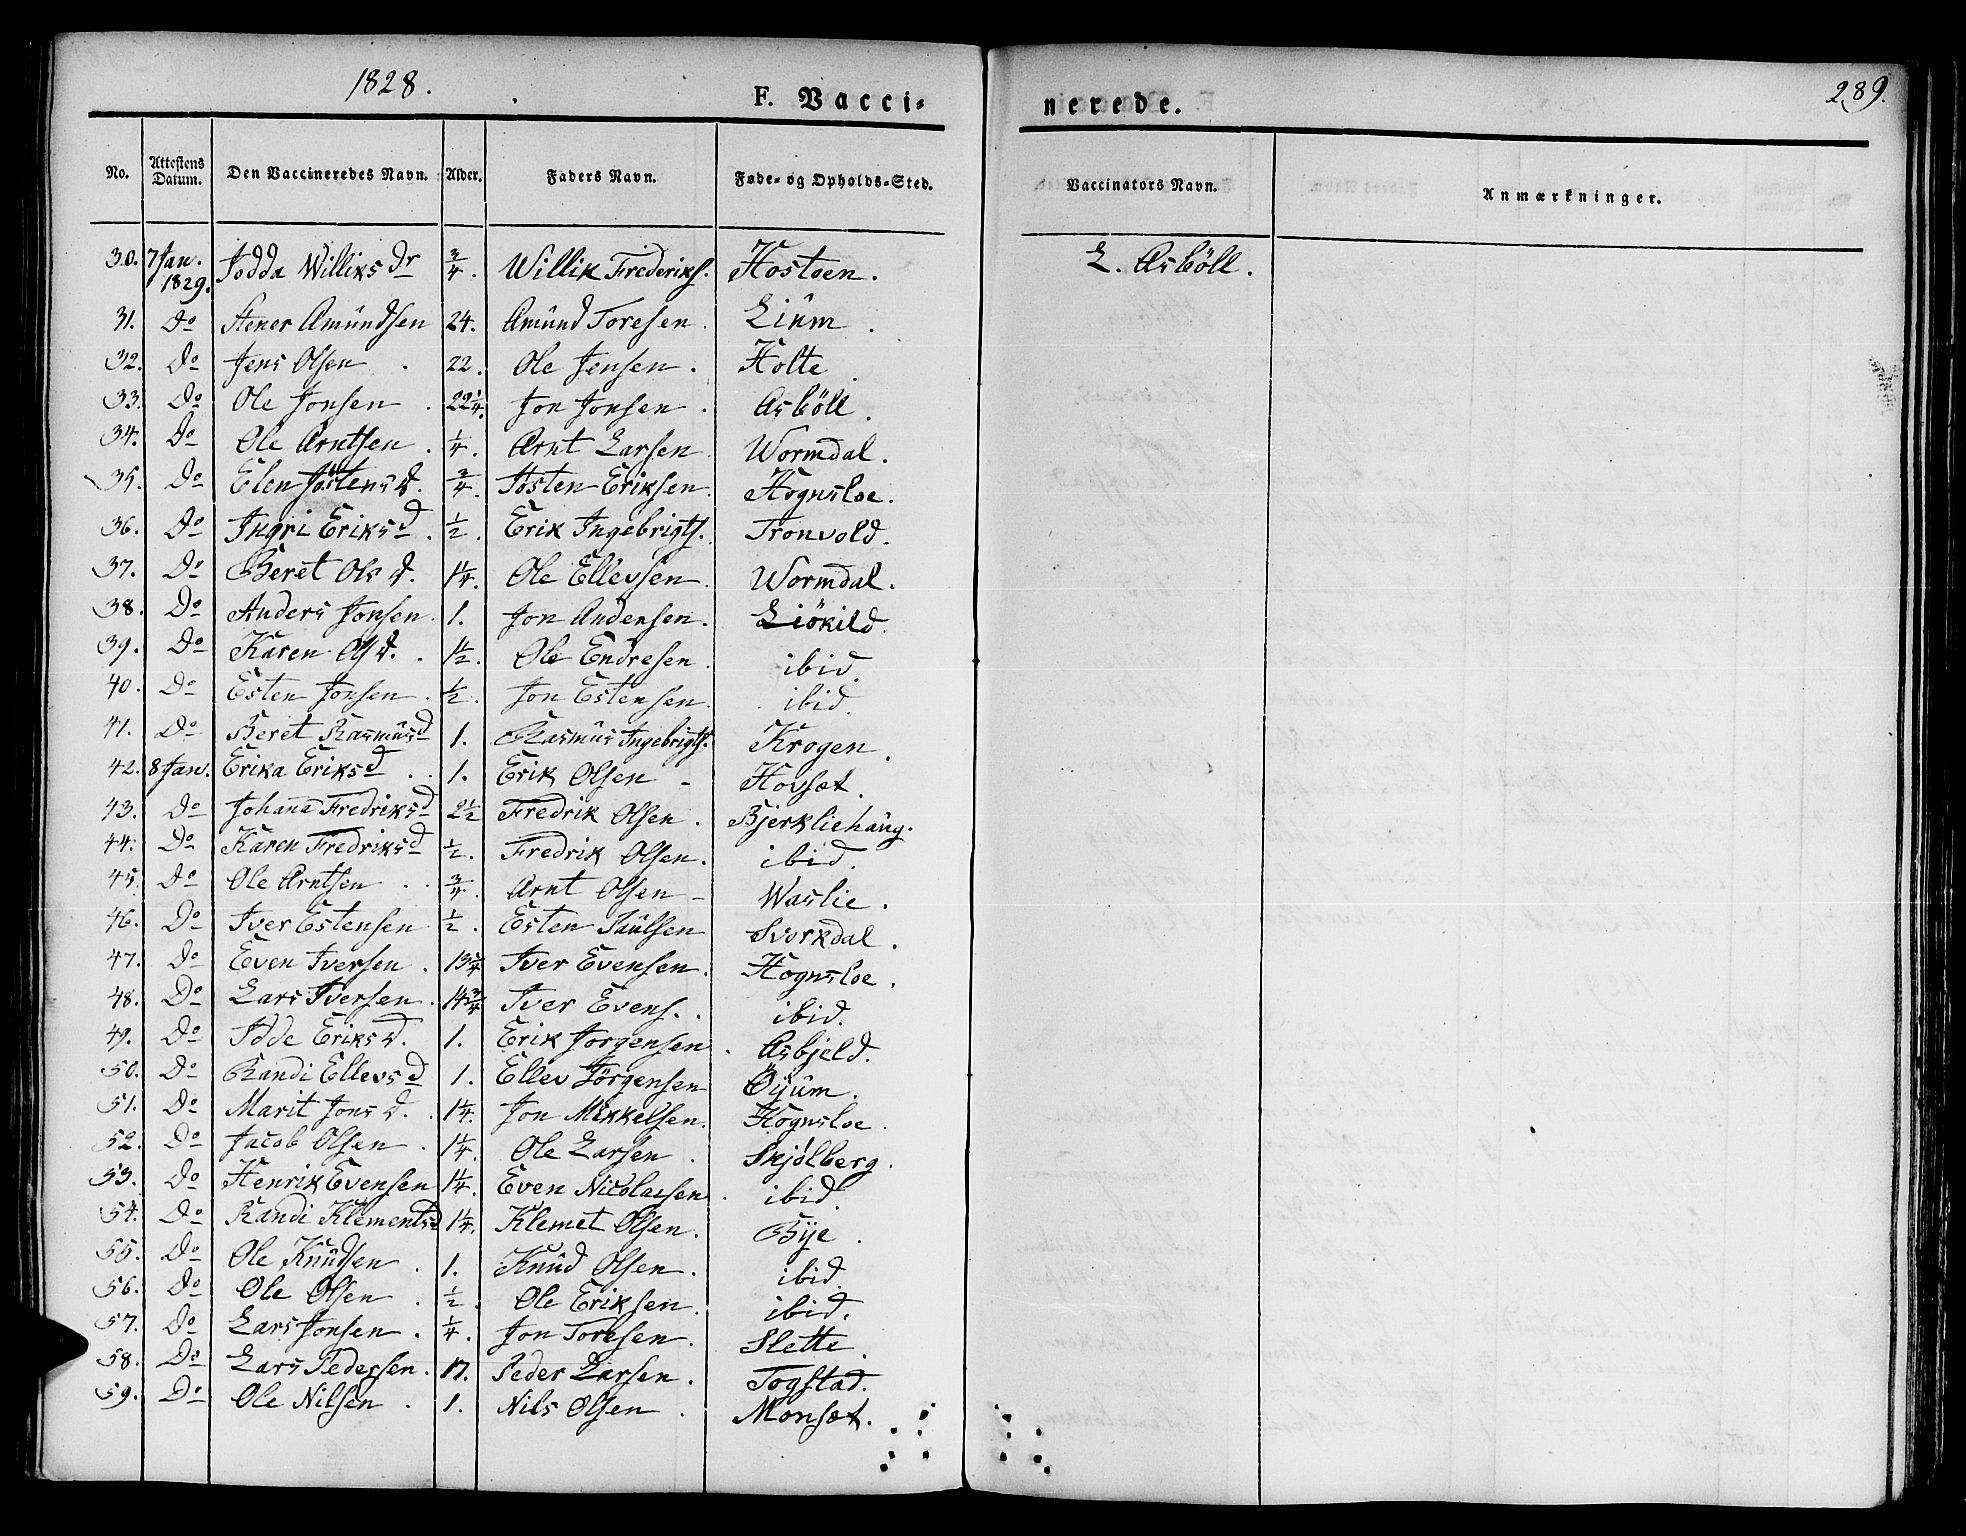 1828.
F. Vacci-
nerede.
289.
No. Attestens Datum. Den Vaccineredes Navn. Alder. Faders Navn. Føde- og Opholds-Sted. Vaccinators Navn. Anmærkninger.
30. 7 Jan. 1829. Jodda Williksdr 3/4. Willik Frederiks. Hostoen. L. Asböll.
31. Do Stener Amündsen 24. Amünd Toresen. Liüm.
32. Do Jens Olsen. 22. Ole Jensen. Holte.
33. Do Ole Jonsen. 22 1/4. Jon Jonsen. Asböll.
34. Do Ole Arntsen. 1/4. Arnt Larsen Wormdal.
35. Do Elen Jöstensd. 3/4. Jösten Eriksen. Hognsloe.
36. Do Ingri Eriksd. 1/2. Erik Ingebrigts. Tronvold.
37. Do Beret Olsd. 1 1/4. Ole Ellevsen. Wormdal.
38. Do Anders Jonsen. 1. Jon Andersen. Liökild.
39. Do Karen Olsd. 1 1/2. Ole Endresen. ibid.
40. Do Esten Jonsen. 1/2. Jon Estensen. ibid.
41. Do Beret Rasmüsd 1. Rasmüs Ingebrigts. Krogen.
42. 8 Jan. Erika Eriksd.. 1. Erik Olsen - Hovsæt.
43. Do Johanna Fredriksd 2 1/2 Fredrik Olsen. Bjerkliehaüg.
44. Do Karen Fredriksd 1/2. Fredrik Olsen. ibid.
45. Do Ole Arntsen.. 3/4. Arnt Olsen - Waslie.
46. Do Iver Estensen 1/2. Esten Paülsen Svorkdal.
47. Do Even Iversen. 13 3/4 Iver Evensen. Hognsloe.
48. Do Lars Iversen. 14 3/4 Iver Evens.. ibid.
49. Do Idde Eriksd. 1. Erik Jorgensen. Asbjeld.
50. Do Randi Ellevsd 1. Ellev Jörgensen Öyüm.
51. Do Marit Jonsd.. 1 1/4. Jon Mikkelsen. Hognsloe.
52. Do Jacob Olsen. 1 1/4. Ole Larsen. Skjølberg.
53. Do Henrik Evensen 1 1/4. Even Nicolaisen. ibid.
54. Do Randi Klementsd 1 1/4. Klemet Olsen. Bye.
55. Do Ole Knüdsen. 1. Knüd Olsen. ibid.
56. Do Ole Olsen. 1/2. Ole Eriksen. ibid.
57. Do Lars Jonsen. 1/4. Jon Toresen. Slette.
58. Do Lars Pedersen. 17. Peder Larsen. Togstad.
59. Do Ole Nilsen. 1. Nils Olsen. Monsæt.